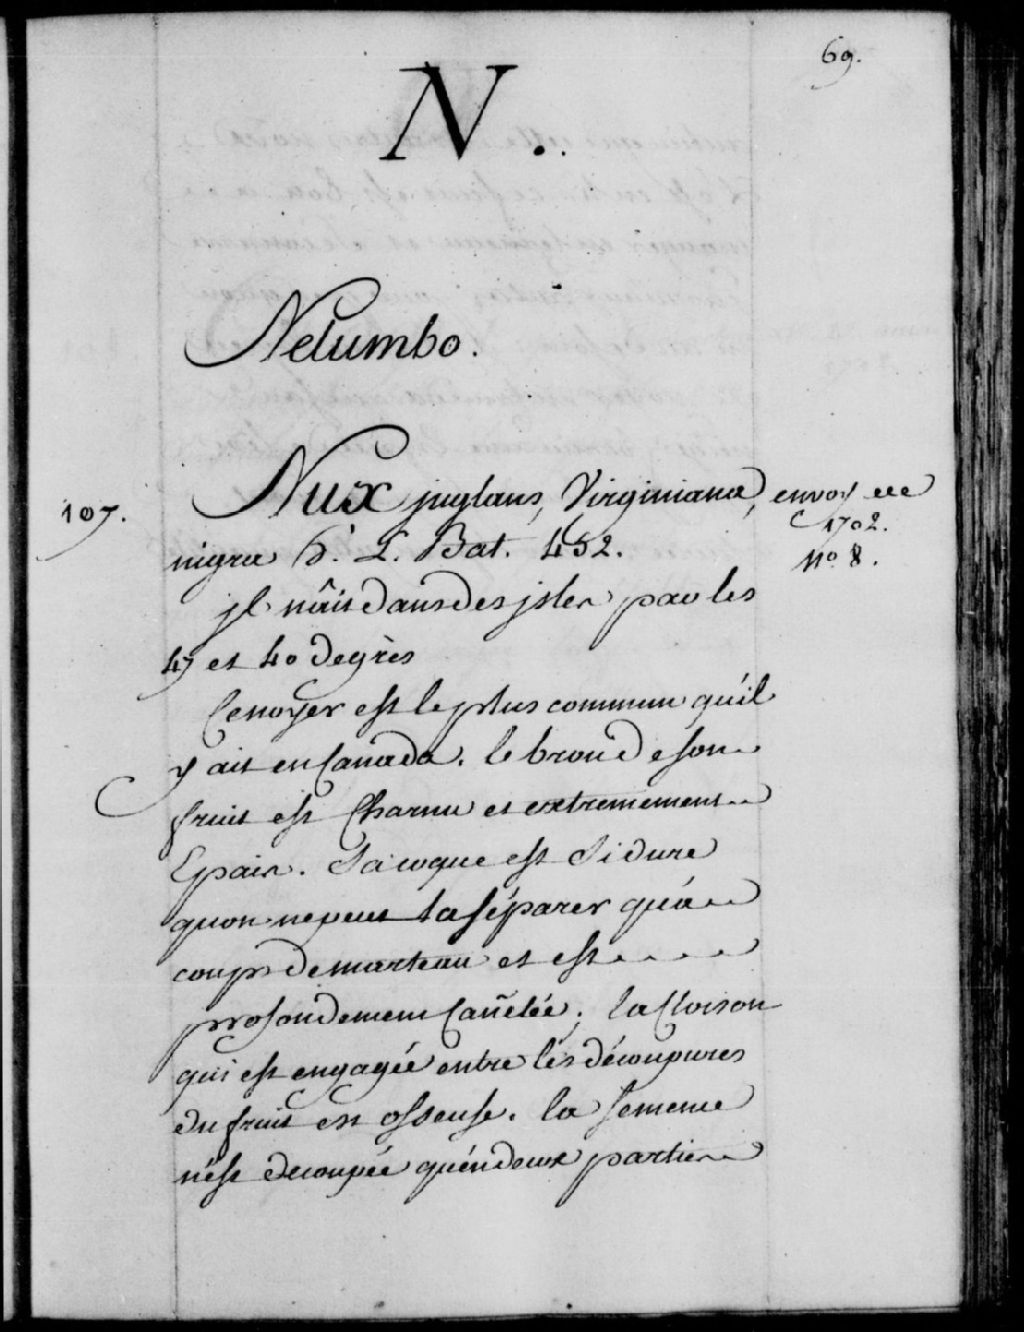 69.
N.
Nelumbo.
107. Nux juglans, Virginiana, envoyeee
1702.
nigra h. L. Bat. 452.
No. 8.
jl nâit dans des jsles par les
47 et 40 degrès
Cenoyer est le plus commun qu'il
y ait en Canada. le brou de son
fruit est Charnu et extremement
Epais. Sa coque est Si dure
quon nepeut la séparer qu'á
coups de marteau et est
profondement Cañelée; la Cloison
qui est engagée entre lés découpures
du fruit est osseuse. la semence
n'est decoupée qu'én deux parties